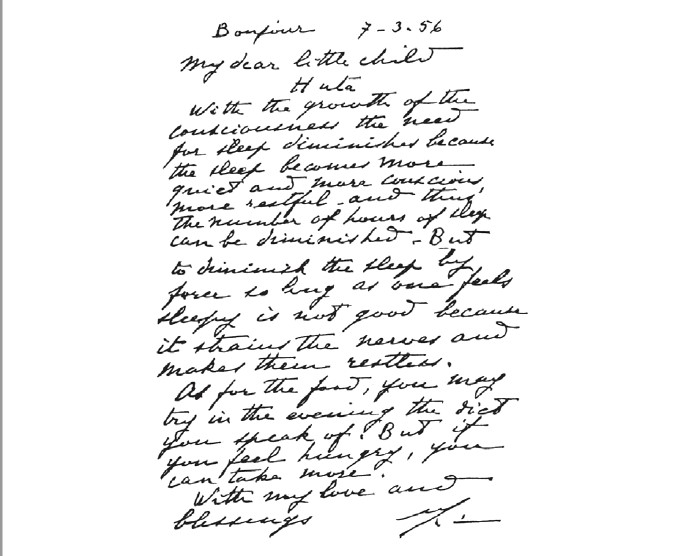 Bonjour 7-3-56
My dear little child
Huta
With the growth of the
consciousness the need
for sleep diminishes because
the sleep becomes more
quiet and more conscious,
more restful - and thus,
the number of hours of sleep
can be diminished - But
to diminish the sleep by
force so long as one feels
sleepy is not good because
it strains the nerves and
makes them restless.
As for the food, you may
try in the evening the diet
you speak of. But if
you feel hungry, you
can take more.
With my love and
blessings